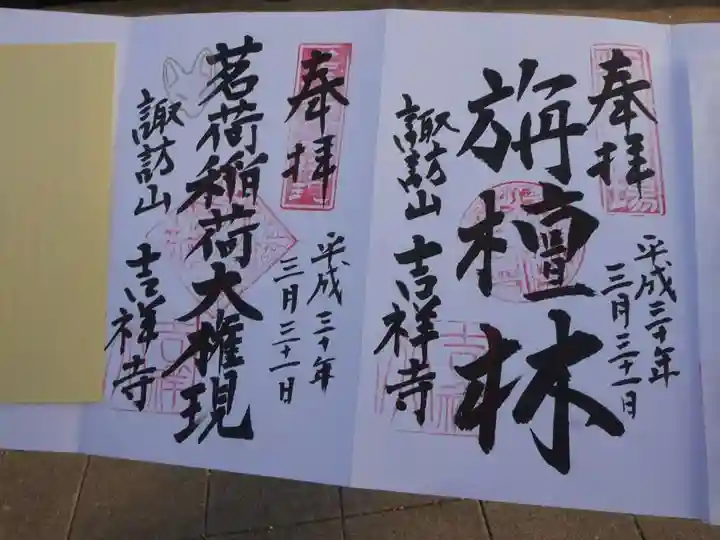 奉拝
平成三十年
三月三十一日
旃檀林
諏訪山 吉祥寺
奉拝
平成三十年
三月三十一日
茗荷稲荷大権現
諏訪山 吉祥寺